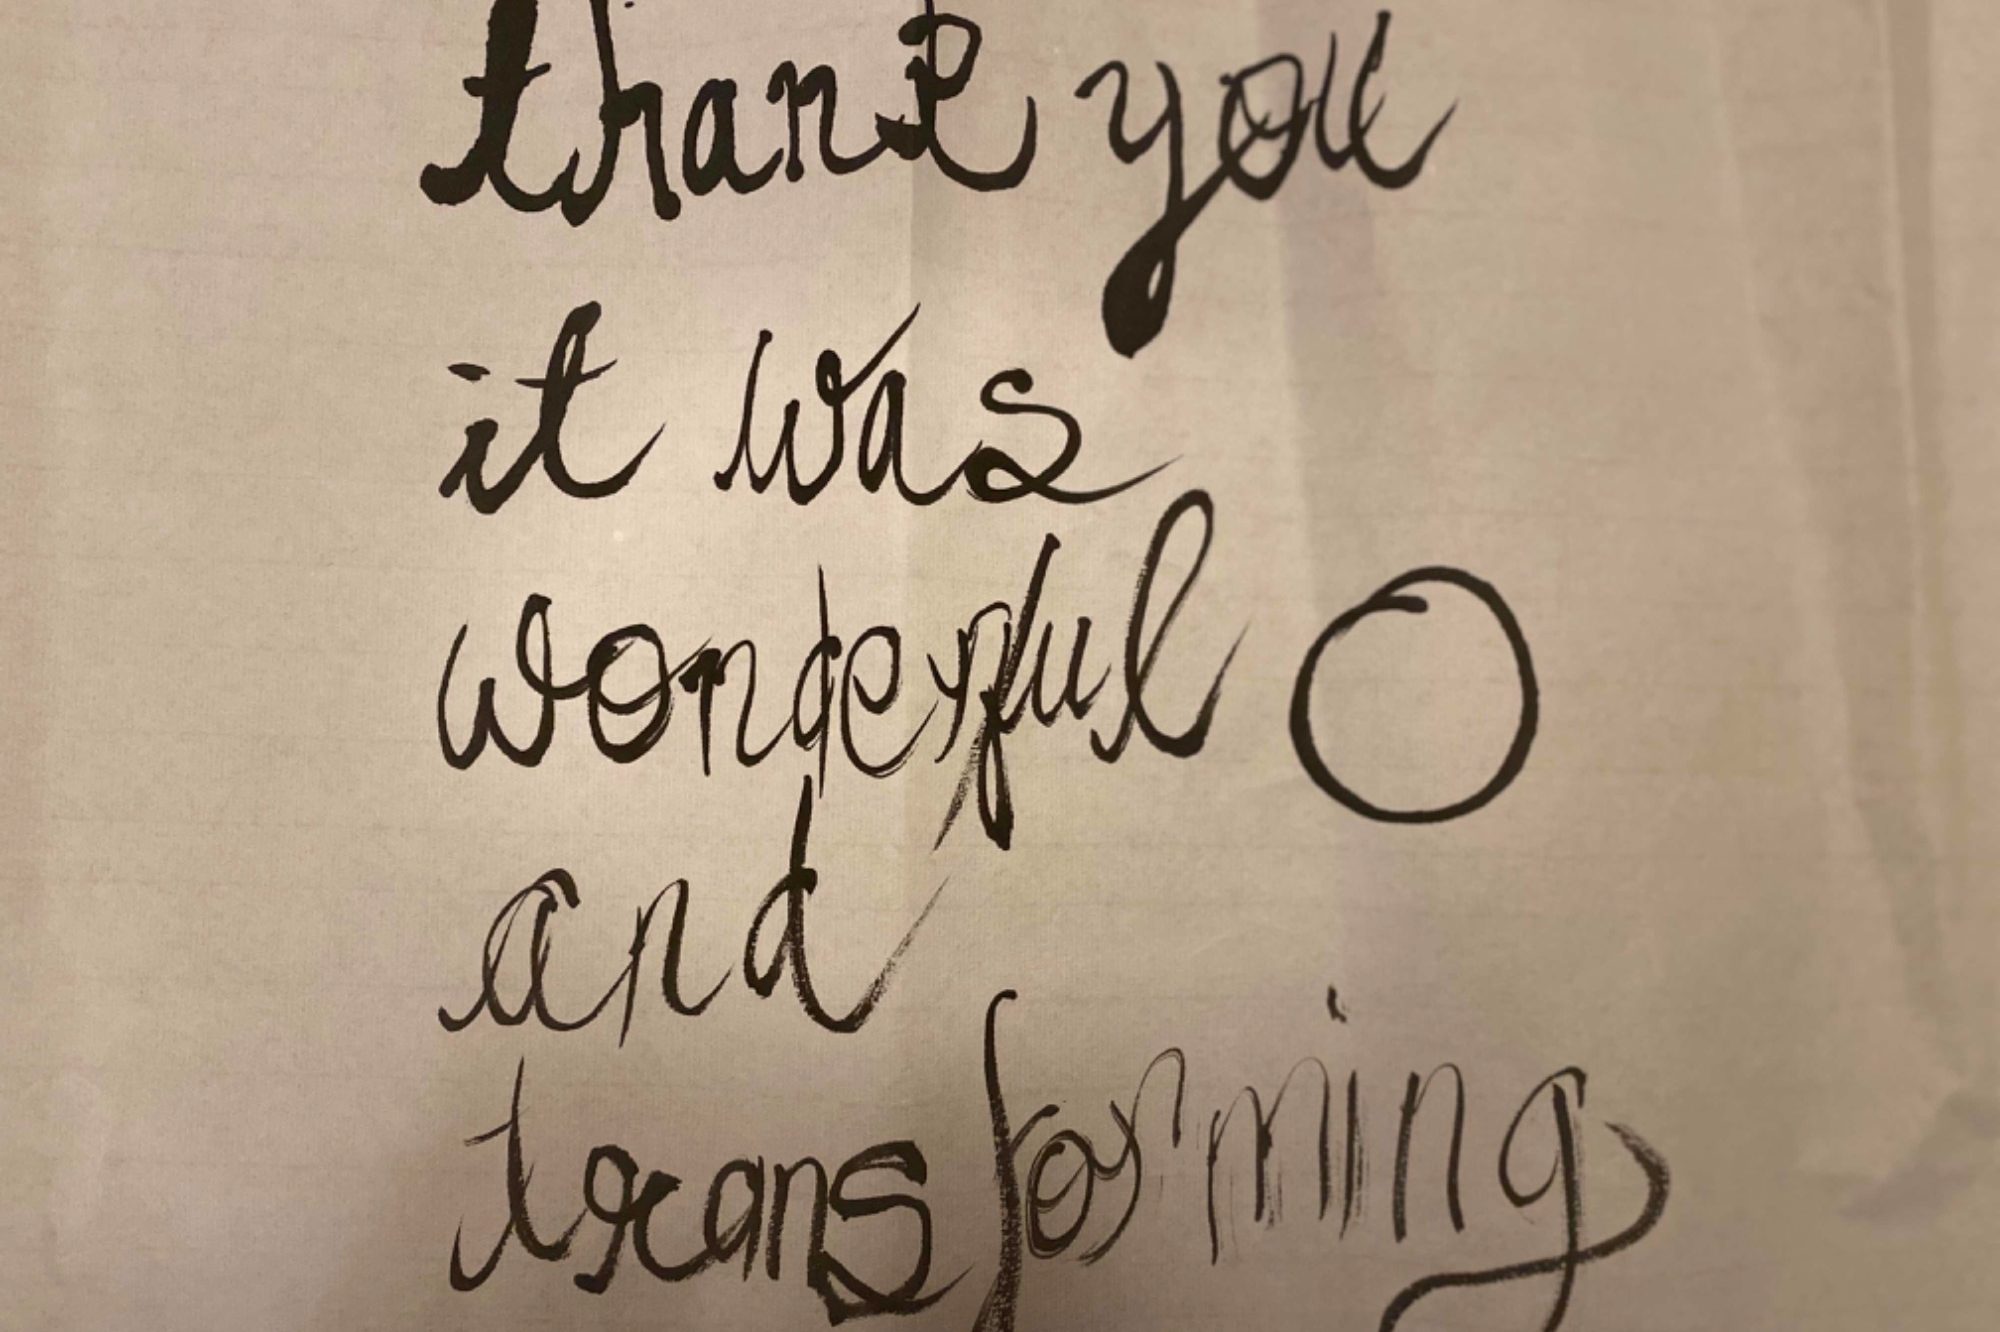 thank you
it was
wonderful
and
transforming